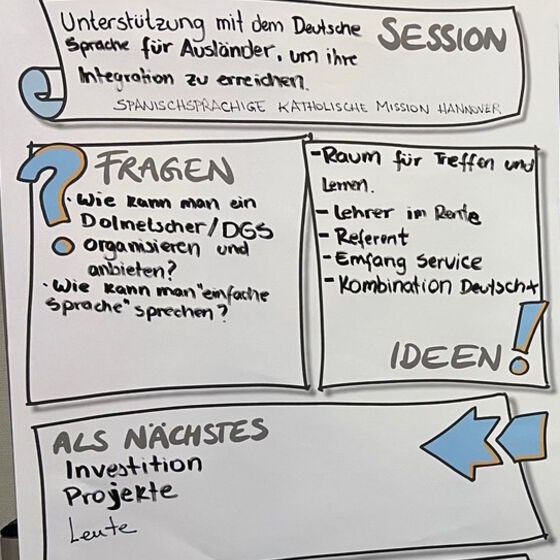 Unterstützung mit dem Deutsche
Sprache für Ausländer, um ihre
Integration zu erreichen.
SESSION
SPANISCHSPRACHIGE KATHOLISCHE MISSION HANNOVER
? FRAGEN
· Wie kann man ein
Dolmetscher/DGS
organisieren und
anbieten?
· Wie kann man "einfache
Sprache" sprechen?
- Raum für Treffen und
Lernen.
- Lehrer im Rente
- Referent
- Emfang Service
- Kombination Deutsch+
IDEEN!
ALS NÄCHSTES
Investition
Projekte
Leute